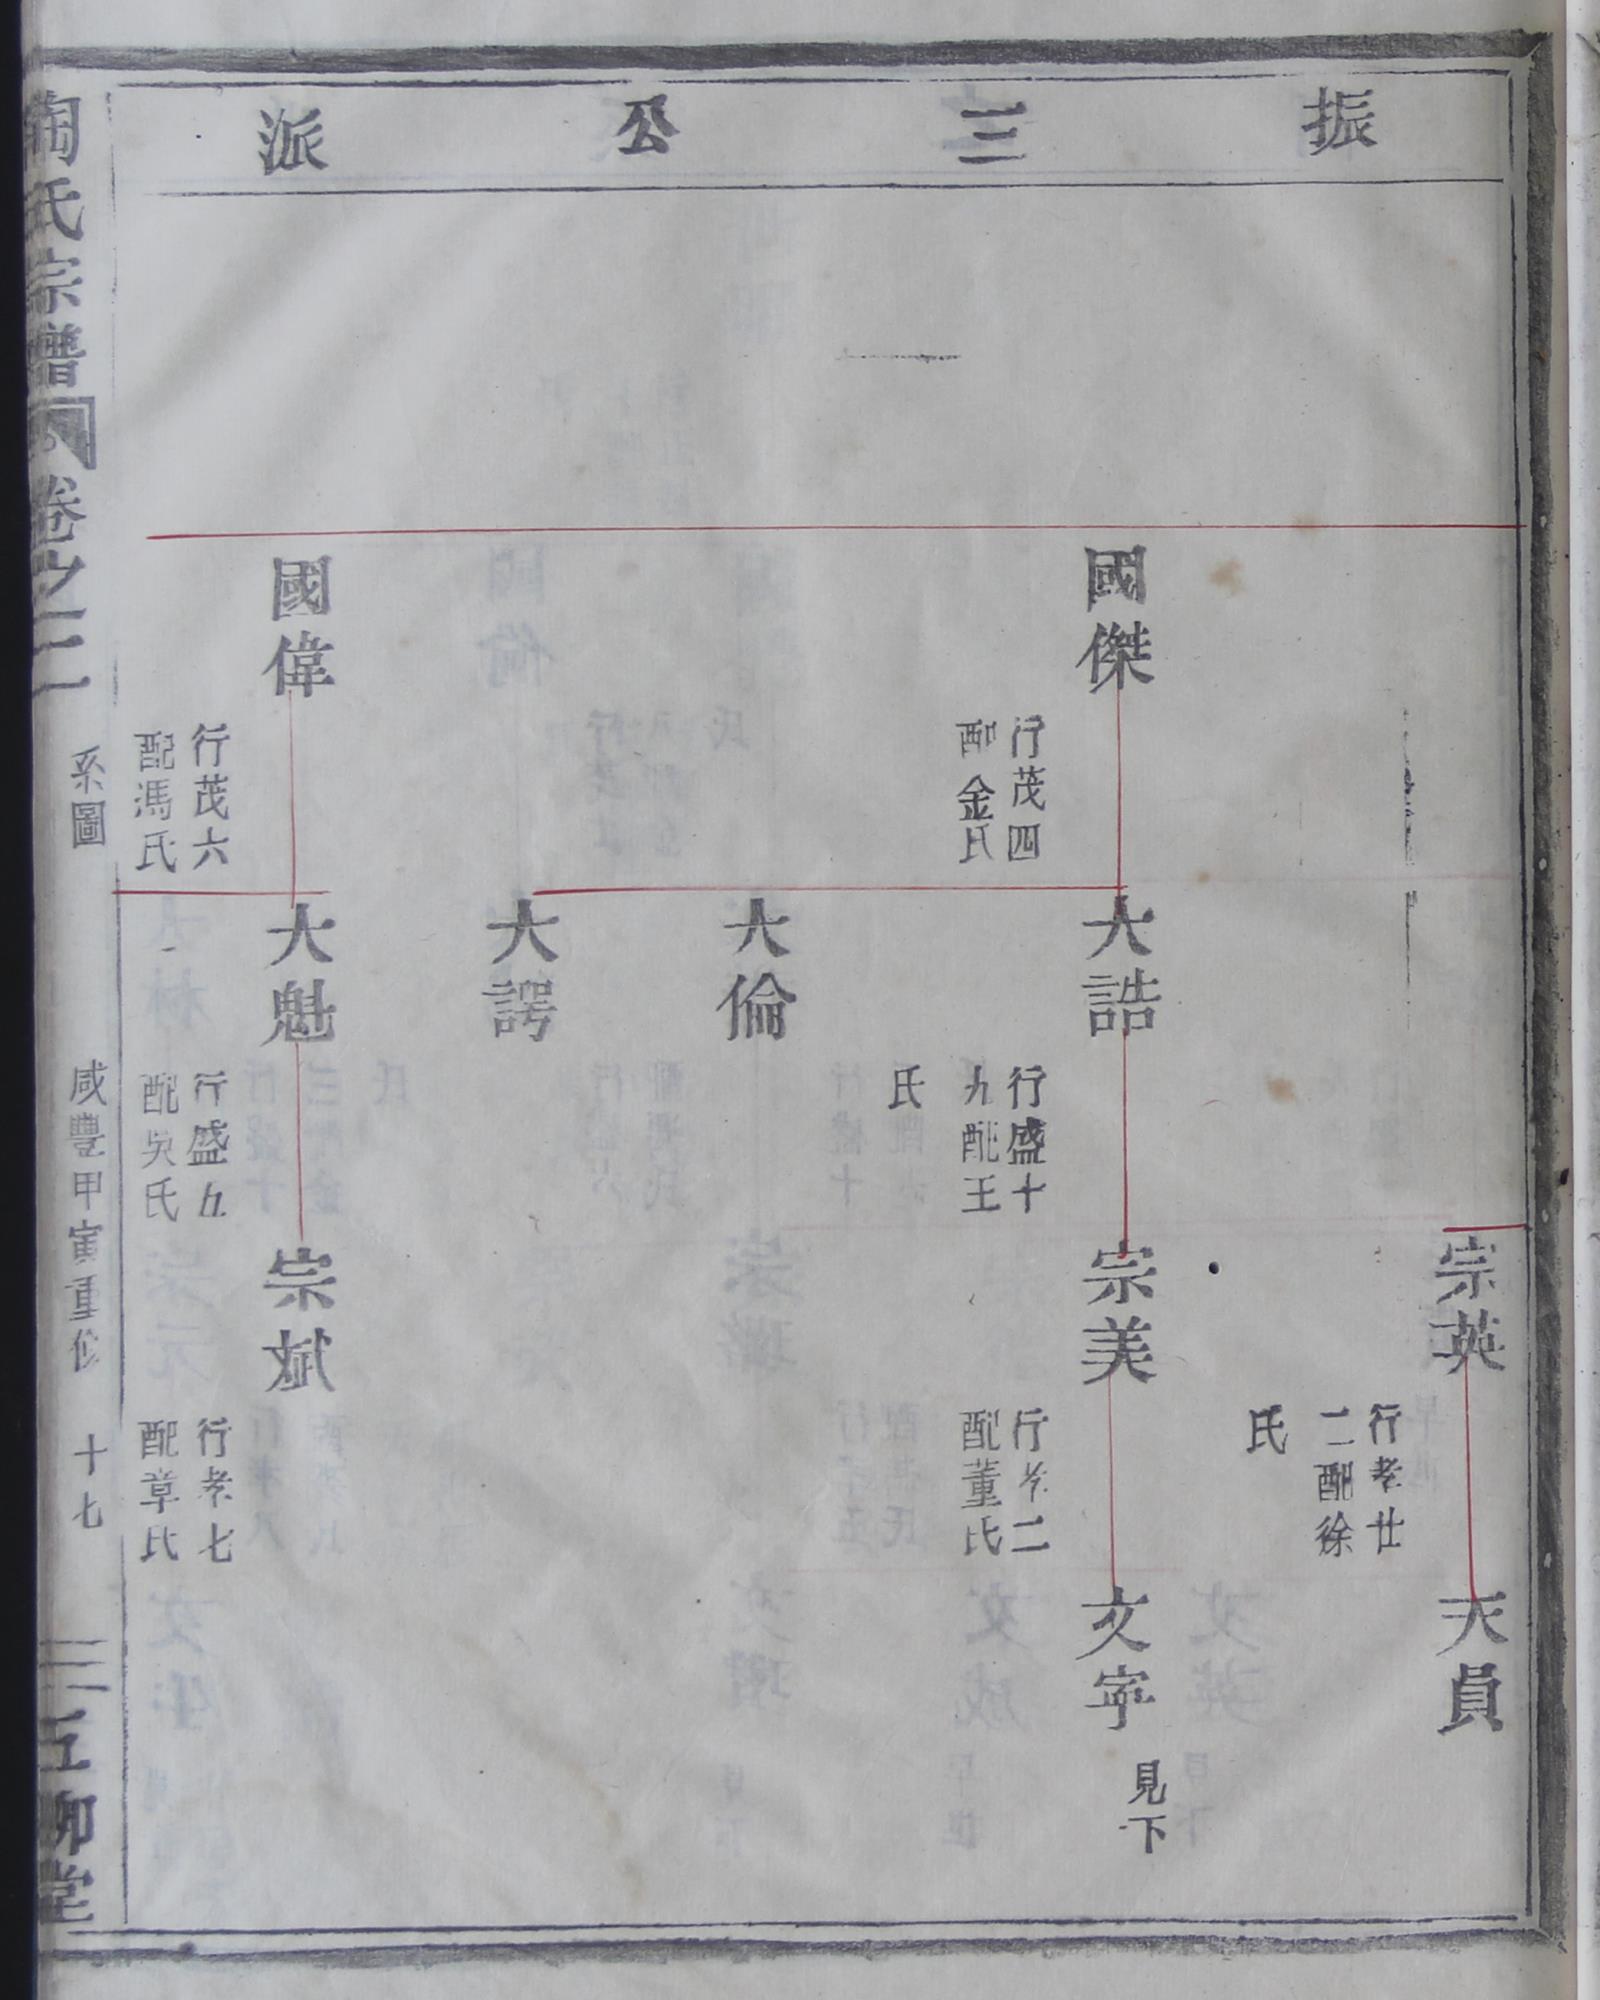 振三公派
宗英
行孝廿
二配徐
氏
天員
國傑
行茂四
配金氏
大誥
行盛十
九配王
氏
宗美
行孝二
配董氏
文寧
見下
大倫
大諤
國偉
行茂六
配馮氏
大魁
行盛五
配吳氏
宗斌
行孝七
配章氏
陶氏宗譜
卷之二
系圖
咸豐甲寅重修
十七
五柳堂